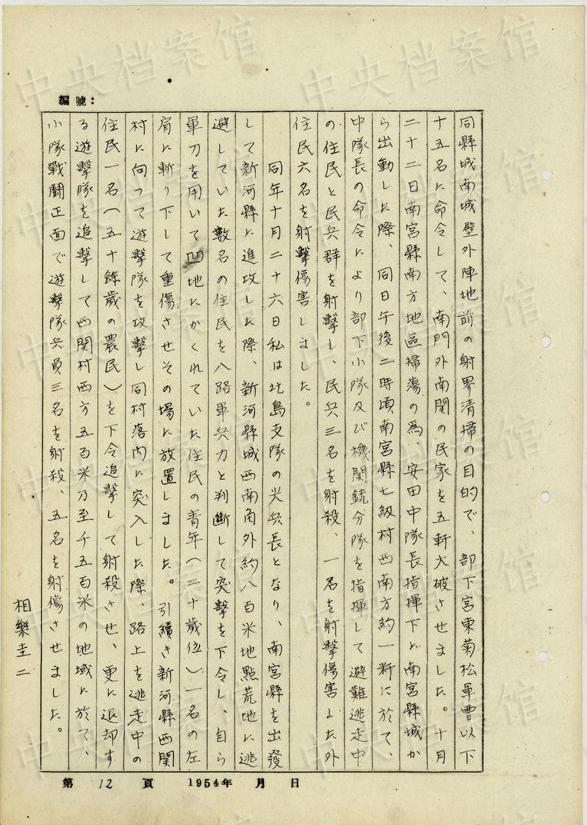 編號：
同縣城南城壁外陣地前の射界清掃の目的で、部下宮東菊松軍曹以下
十五名に命令して、南門外南関の民家を五軒大破させました。十月
二十二日南宮縣南方地區掃蕩の為、安田中隊長指揮下に南宮縣城か
ら出動した際、同日午後二時頃南宮縣七級村西南方約一粁に於て、
中隊長の命令により部下小隊及び機関銃分隊を指揮して避難逃走中
の住民と民兵群を射撃し、民兵三名を射殺、一名を射撃傷害した外
住民六名を射撃傷害しました。
同年十月二十六日私は北島支隊の尖兵長となり、南宮縣を出發
して新河縣に進攻した際、新河縣城西南角外約八百米地點荒地に逃
避していた數名の住民を八路軍兵力と判断して突撃を下令し、自ら
軍刀を用いて凹地にかくれていた住民の青年（二十歳位）一名の左
肩に斬り下して重傷させその場に放置しました。引續き新河縣西関
村に向って遊撃隊を攻撃し同村落内に突入した際、路上を逃走中の
住民一名（五十餘歳の農民）を下令追撃して射殺させ、更に退却す
る遊撃隊を追撃して西関村西方五百米乃至千五百米の地域に於て、
小隊戰闘正面で遊撃隊兵員三名を射殺、五名を射傷させました。
相樂圭二
第 12 頁 1954年 月 日
中央档案馆